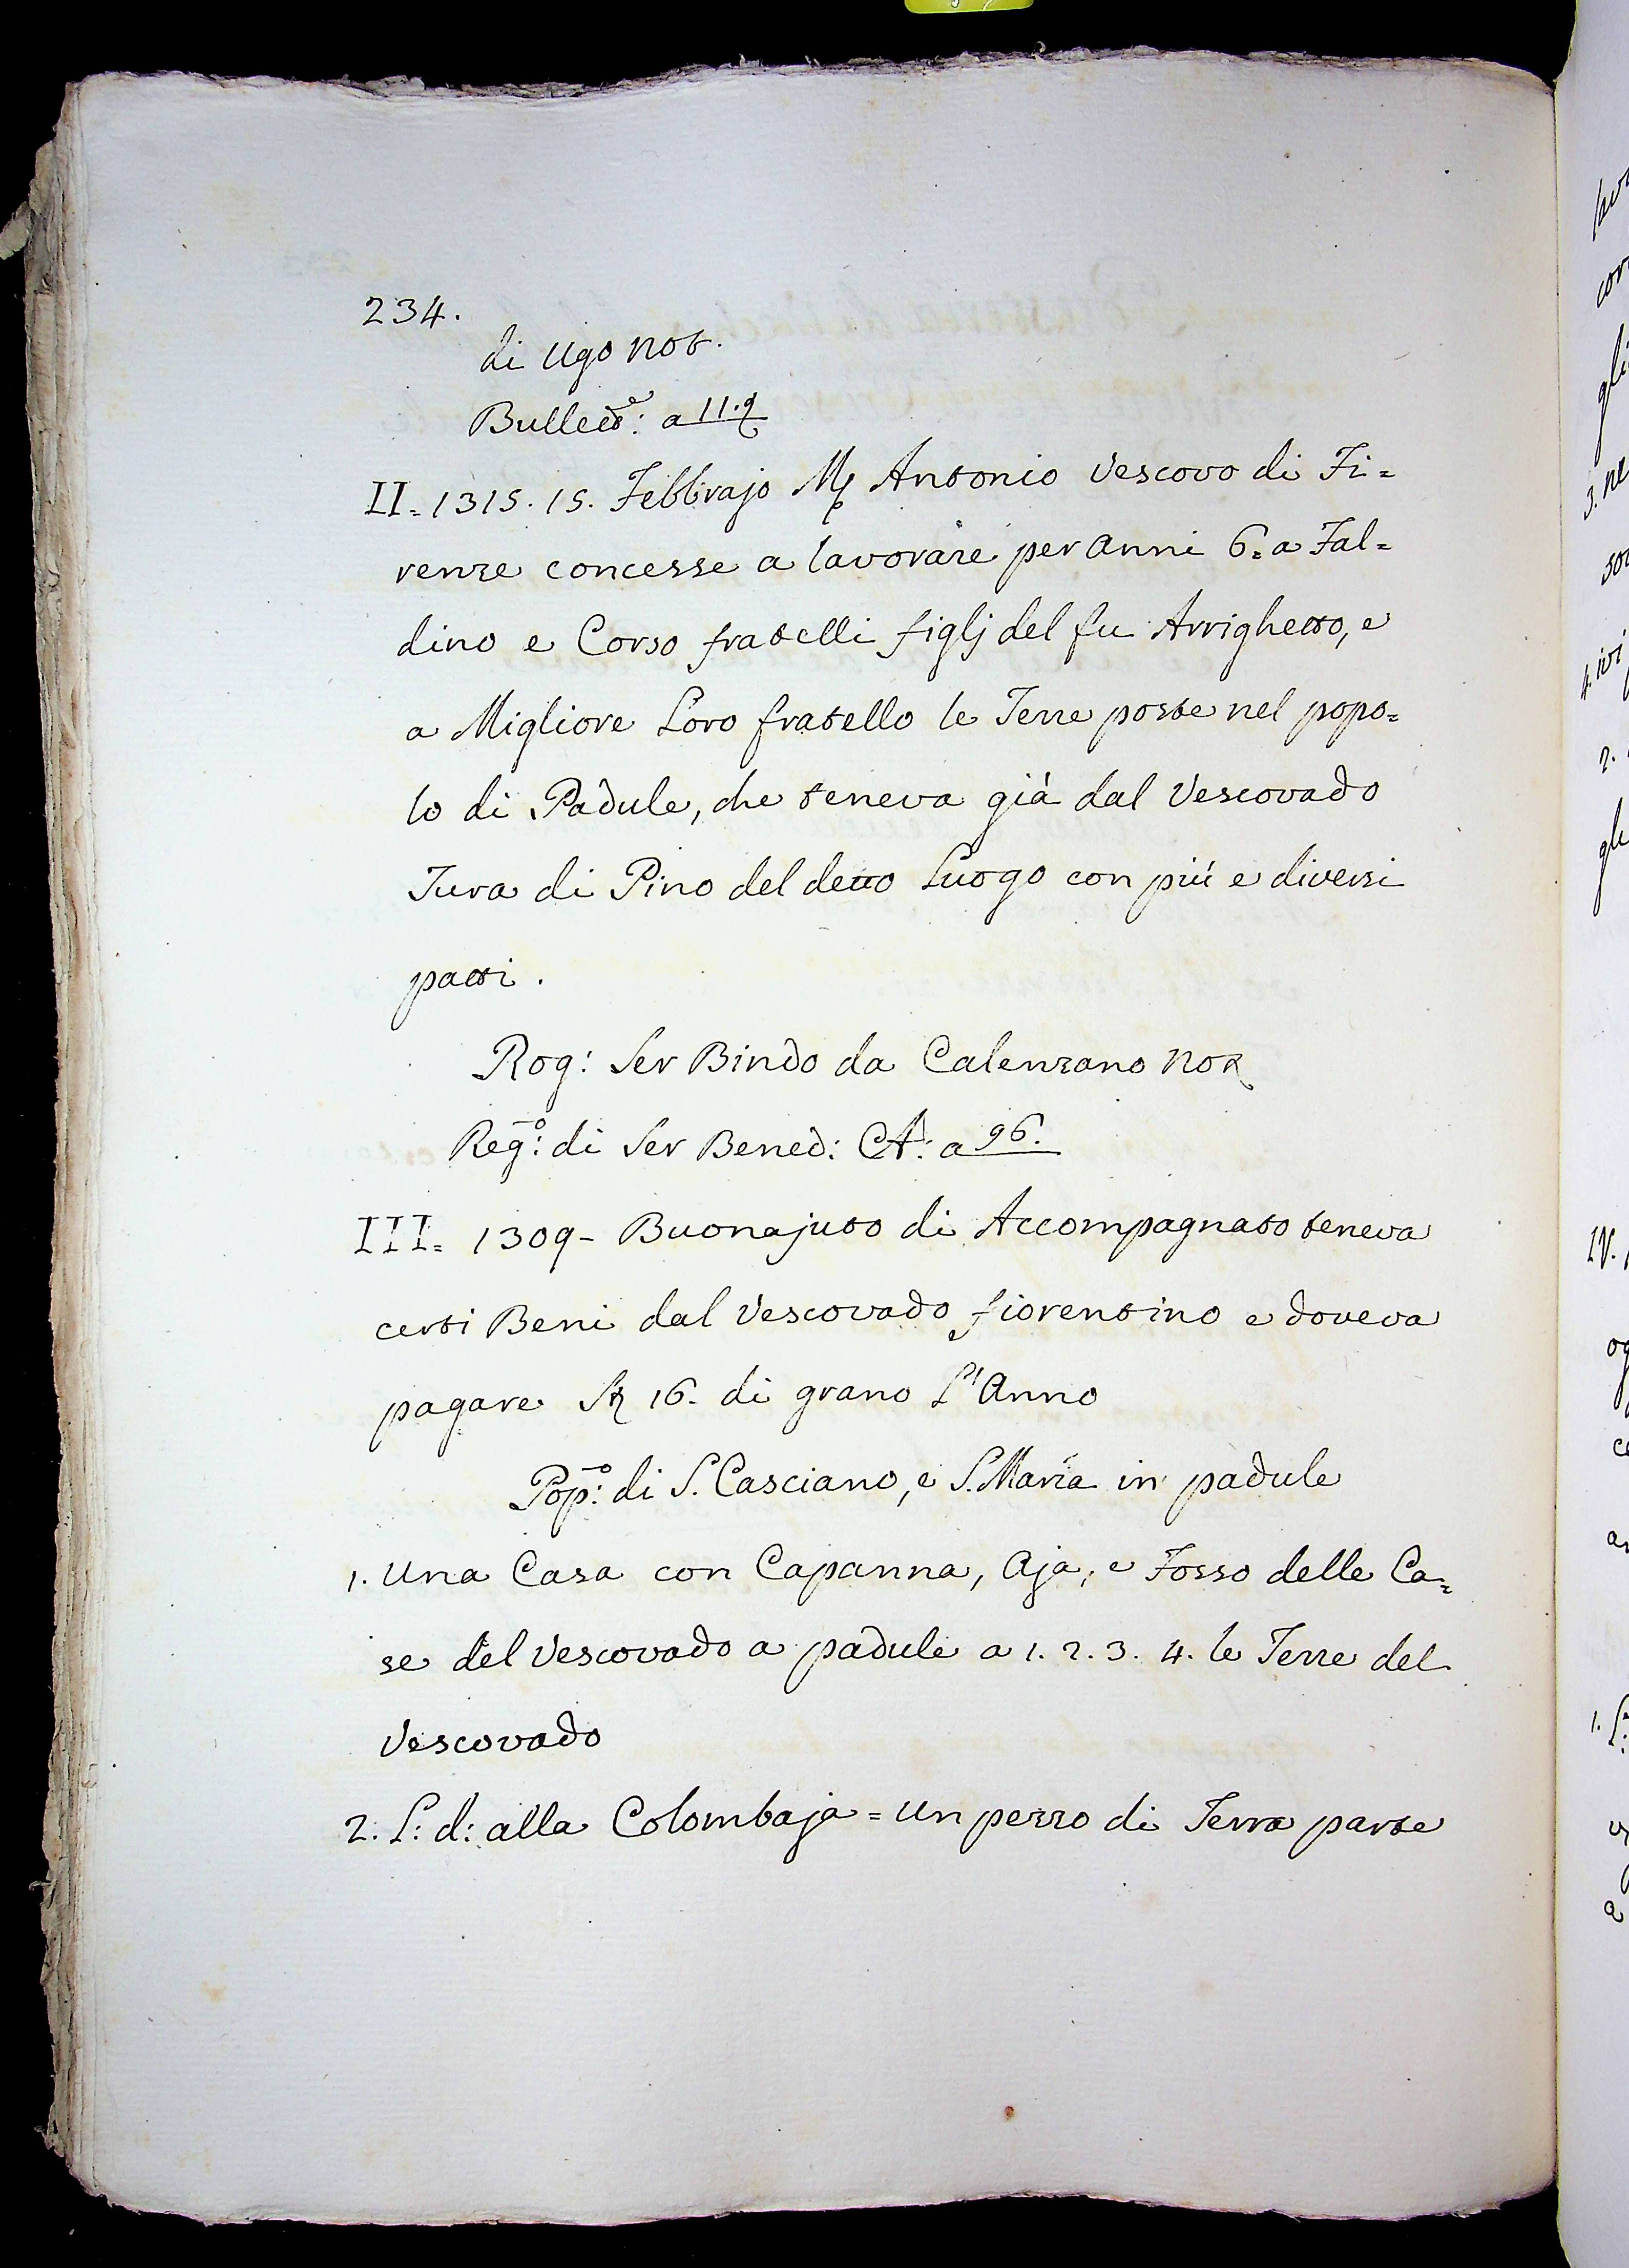 234.
di Ugo not.
Bullett.e: a 11.
II= 1315. 15. Febbrajo M. Antonio Vescovo di Fi=
renze concesse a lavorare per anni 6= a Fal=
dino e Corso fratelli figlj del fu Arrighetto, e
a Migliore Loro fratello le Terre poste nel popo=
lo di Padule, che teneva già dal Vescovado
Tura di Pino del detto Luogo con più e diversi
patti.
Rog: Ser Bindo da Calenzano not
Reg.o: di Ser Bened: A: a 96.
III= 1309- Buonajuto di Accompagnato teneva
certi Beni dal Vescovado fiorentino e doveva
pagare St 16. di grano l'Anno
Pop.o: di S. Casciano, e S. Maria in padule
1. Una Casa con Capanna, Aja, e Fosso delle Ca=
se del Vescovado a padule a 1. 2. 3. 4. le Terre del
Vescovado
2. L: d: alla Colombaja = un pezzo di Terra parte